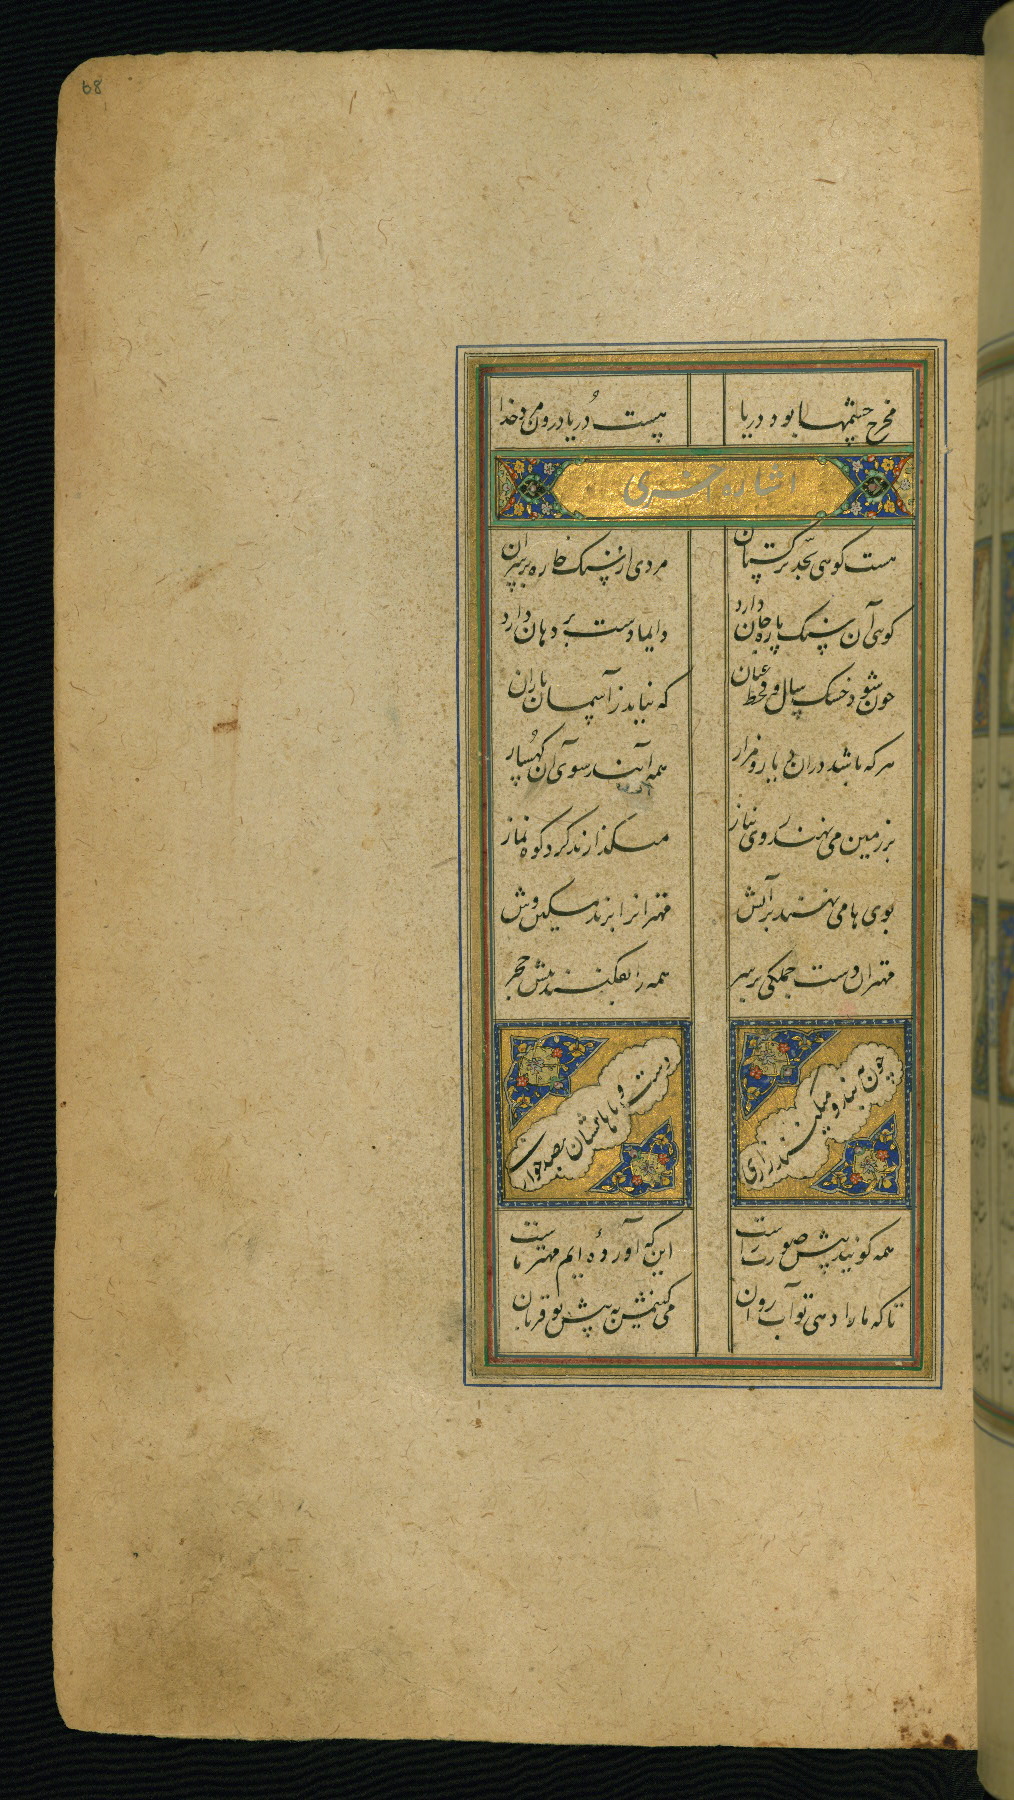 68
مخرج چشمها بود دریا
هست دُر یا درون مرد خدا
اشاره اخری
هست کوهی بحد ترکستان
مردی از سنک خاره بر سر آن
کوهی آن سنک پاره جان دارد
دایما دست بر دهان دارد
چون شود خشک سال و قحط عیان
که نیاید ز آسمان باران
هر که باشد در آن دیار و مزار
همه آیند سوی آن کهسار
بر زمین می نهند روی نیاز
میکذارند کرد کوه نماز
بوی ها می نهند بر آتش
مهتر انرا برند مسکین وش
مهتران دست جملکی بر سر
همه را بفکنند پیش حجر
چون ببندند و میکنند زاری
دست و پاهایشان بصد خواری
همه کویند پیش صورت راست
این که آورده ایم مهتر ماست
تا که ما را دهی تو آب روان
می کنیمش به پیش تو قربان